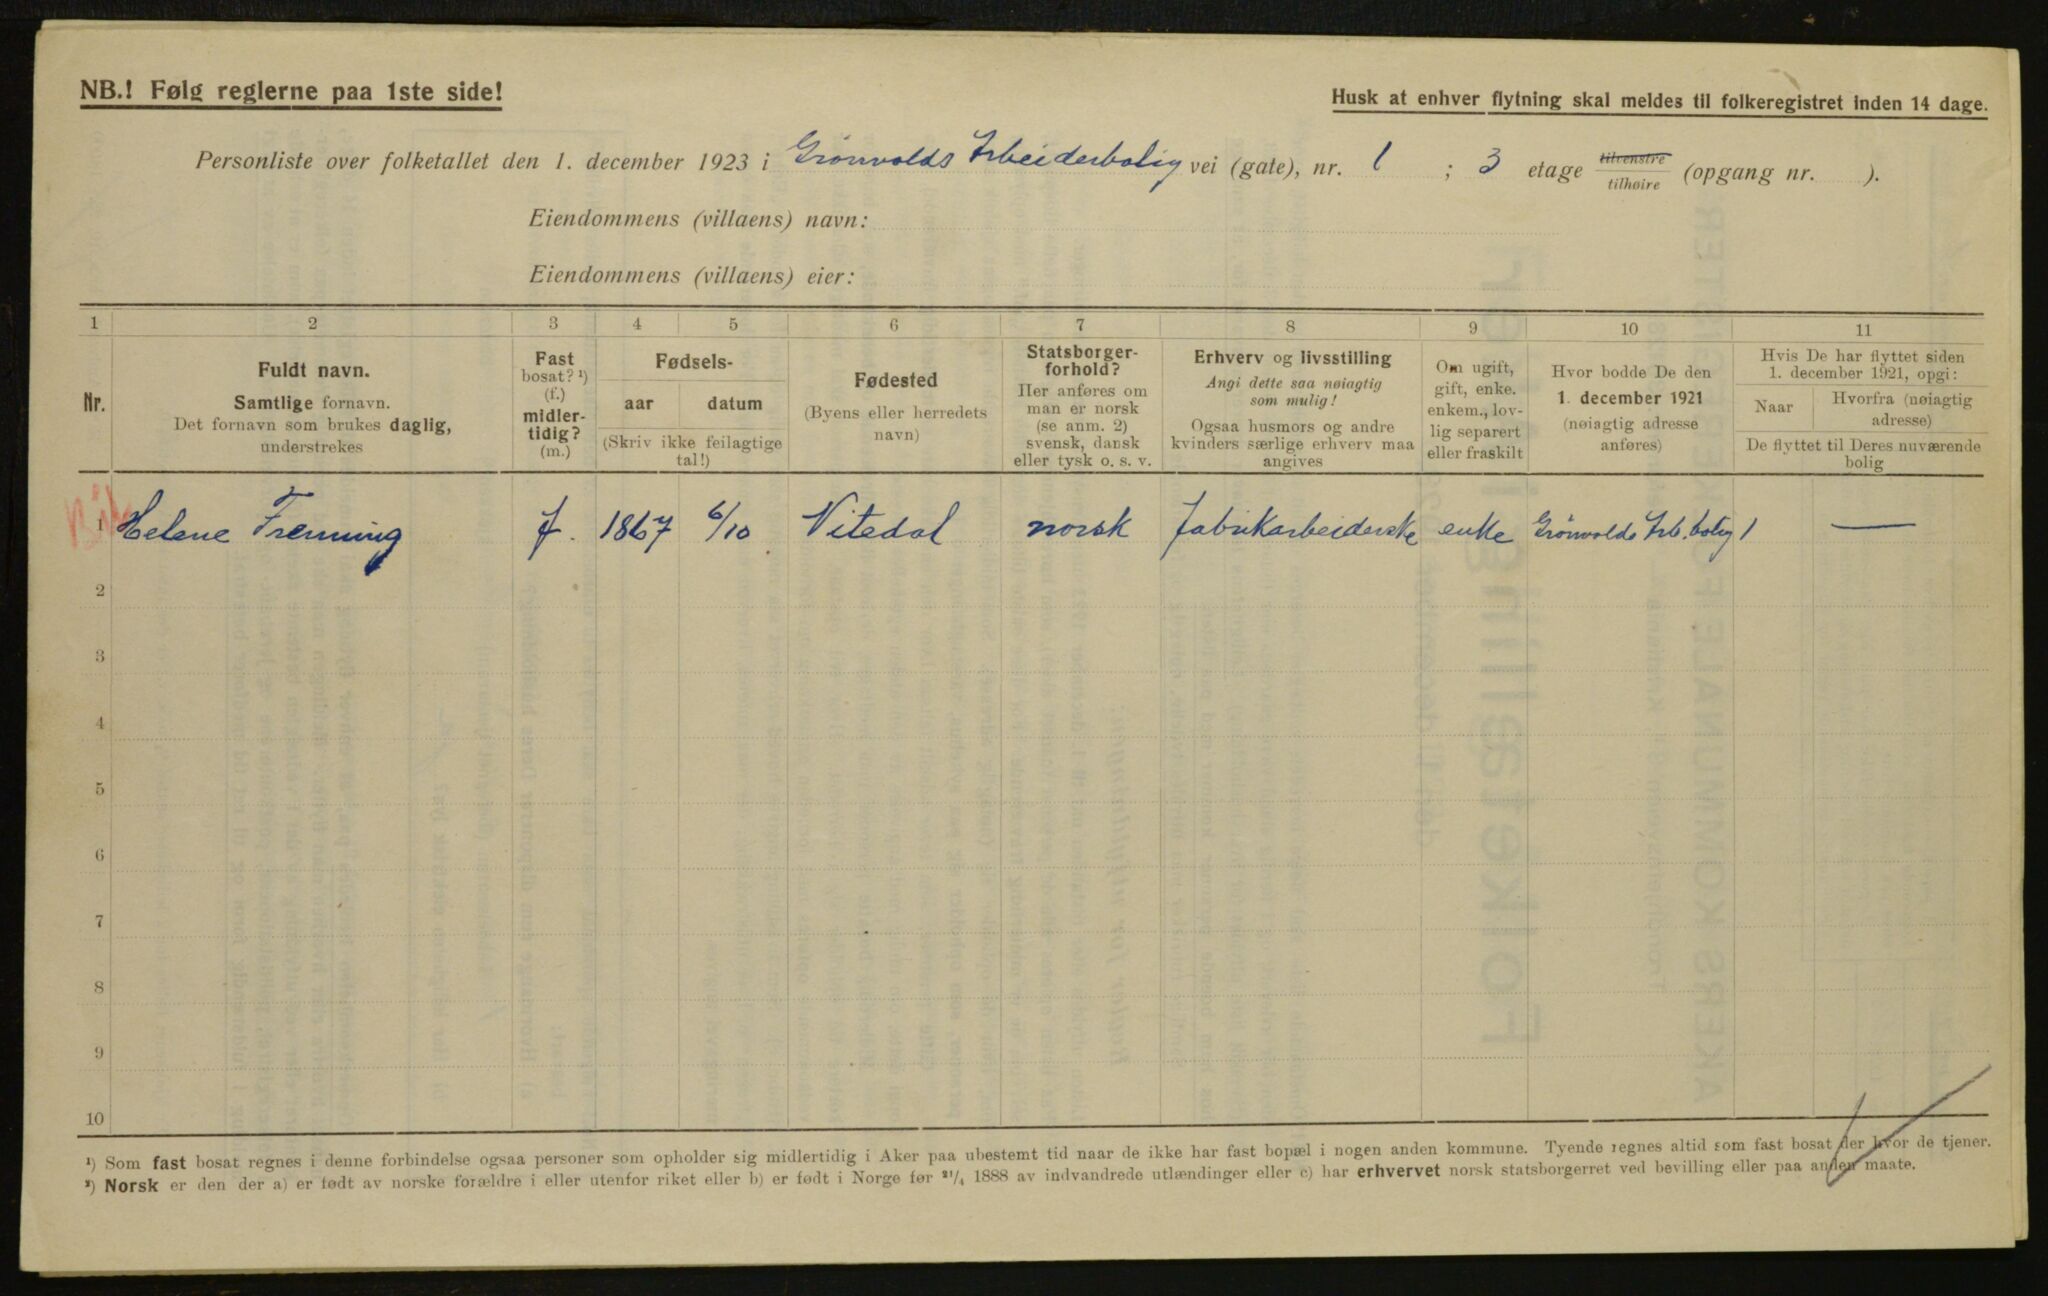 NB.! Følg reglerne paa 1ste side!
Husk at enhver flytning skal meldes til folkeregistret inden 14 dage.
Personliste over folketallet den 1. december 1923 i Grönvolds Arbeiderbolig vei (gate), nr. 1 ; 3 etage tilvenstre tilhøire (opgang nr. ).
Eiendommens (villaens) navn:
Eiendommens (villaens) eier:
1 2 3 4 5 6 7 8 9 10 11
Nr.
Fuldt navn.
Samtlige fornavn.
Det fornavn som brukes daglig,
understrekes
Fast
bosat? ¹)
(f.)
midler-
tidig?
(m.)
Fødsels-
aar datum
(Skriv ikke feilagtige
tal!)
Fødested
(Byens eller herredets
navn)
Statsborger-
forhold?
Her anføres om
man er norsk
(se anm. 2)
svensk, dansk
eller tysk o. s. v.
Erhverv og livsstilling
Angi dette saa nøiagtig
som mulig!
Ogsaa husmors og andre
kvinders særlige erhverv maa
angives
Om ugift,
gift, enke.
enkem., lov-
lig separert
eller fraskilt
Hvor bodde De den
1. december 1921
(nøiagtig adresse
anføres)
Hvis De har flyttet siden
1. december 1921, opgi:
Naar
Hvorfra (nøiagtig
adresse)
De flyttet til Deres nuværende
bolig
1 Helene Frenning f. 1867 6/10 Nitedal norsk fabrikarbeiderske enke Grönvolds Arb. bolig 1 —
2
3
4
5
6
7
8
9
10
¹) Som fast bosat regnes i denne forbindelse ogsaa personer som opholder sig midlertidig i Aker paa ubestemt tid naar de ikke har fast bopæl i nogen anden kommune. Tyende regnes altid som fast bosat der hvor de tjener.
²) Norsk er den der a) er født av norske forældre i eller utenfor riket eller b) er født i Norge før ²¹/₄ 1888 av indvandrede utlændinger eller c) har erhvervet norsk statsborgerret ved bevilling eller paa anden maate.